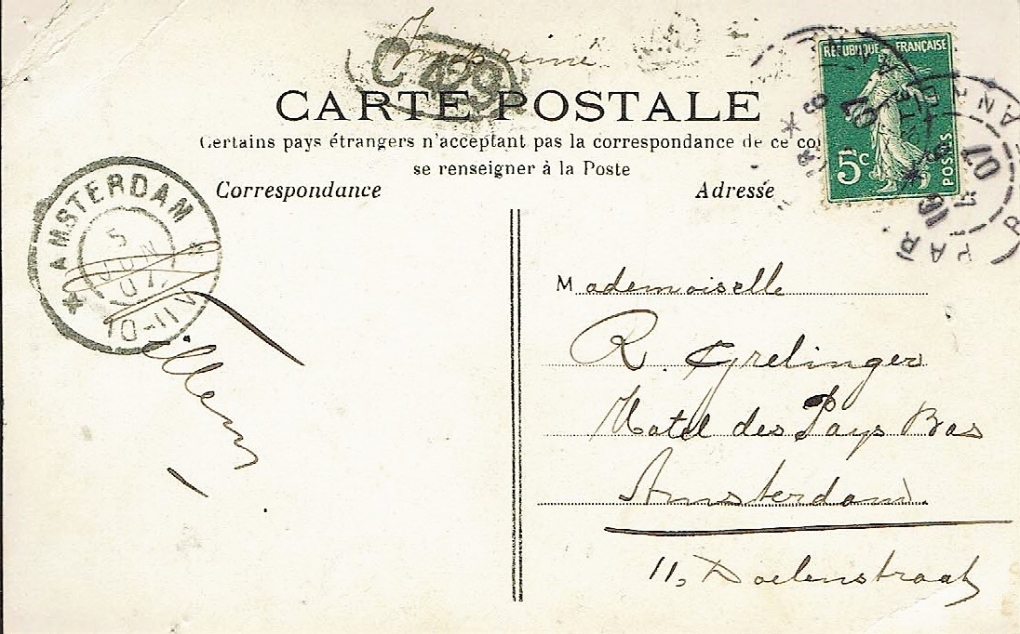 Imprimé
C 429
CARTE POSTALE
Certains pays étrangers n'acceptant pas la correspondance de ce
se renseigner à la Poste
Correspondance
Adresse
REPUBLIQUE FRANÇAISE
5c
POSTES
AMSTERDAM
5
JUN
07
10-11V
Willem
Mademoiselle
R. Grelinger
Hotel des Pays Bas
Amsterdam.
11, Doelenstraat